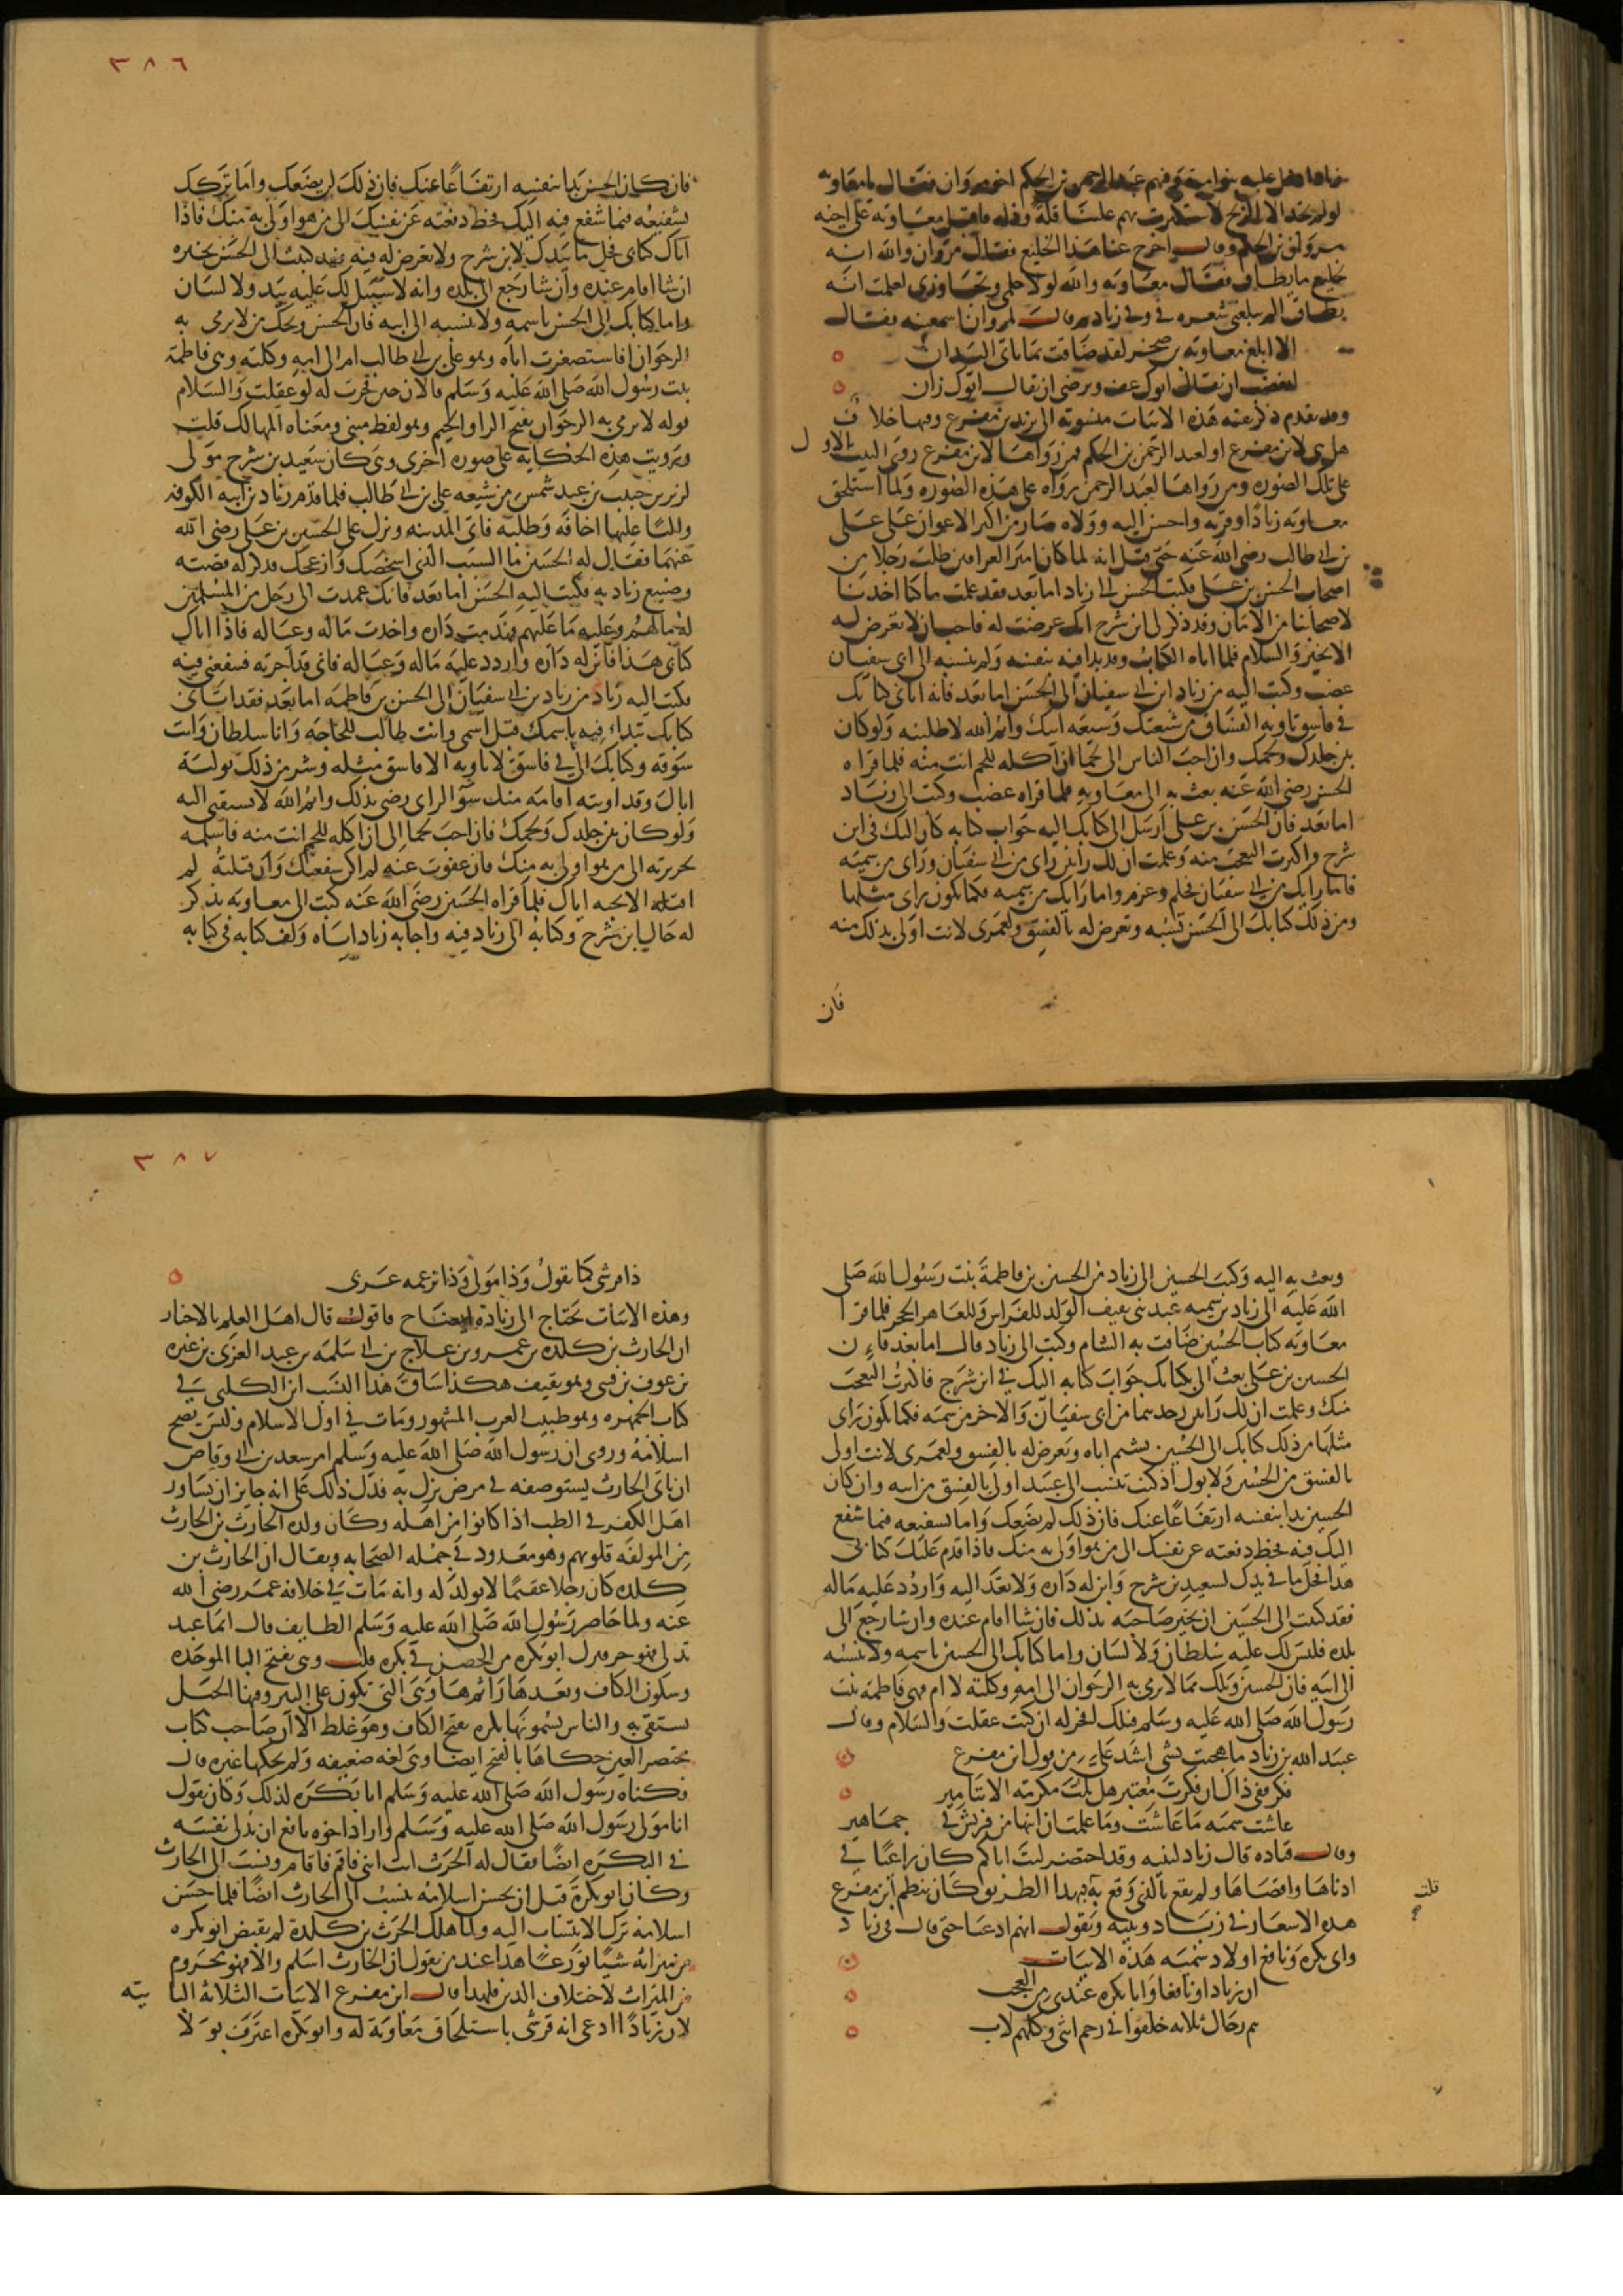 ٣٨٦
لو لم تجد الا الزنج لاستكثرت بهم علينا قلة وذله فاقبل معاوية على اخيه
مروان بن الحكم وقال اخرج عنا هذا الخليع فقال مروان والله انه
لخليع ما يطاق فقال معاوية والله لولا حلمي وتجاوزي لعلمت انه
يطاق الم يبلغني شعره في وفي زياد ثم قال لمروان اسمعنيه فقال
الا ابلغ معاوية بن صخر لقد ضاقت بما ياتي اليدان
اتغضب ان يقال ابوك عف وترضى ان يقال ابوك زان
وقد تقدم ذكر بقية هذه الابيات منسوبة الى يزيد بن مفرغ وفيها خلاف
هل هي لابن مفرغ او لعبد الرحمن بن الحكم فمن رواها لابن مفرغ روى البيت الاول
على تلك الصورة ومن رواها لعبد الرحمن رواه على هذه الصورة ولما استلحق
معاوية زيادا وقربه واحسن اليه وولاه صار من اكبر الاعوان على علي
بن ابي طالب رضي الله عنه حتى قيل انه لما كان امير العراقين طلب رجلا من
اصحاب الحسن بن علي فكتب الحسن الى زياد اما بعد فقد علمت ما كنا اخذنا
لاصحابنا من الامان وقد ذكر لي ابن شرح انك عرضت له فاحب ان لا تعرض له
الا بخير والسلام فلما اتاه الكتاب وقد بدا فيه بنفسه ولم ينسبه الى ابي سفيان
غضب وكتب اليه من زياد ابن ابي سفيان الى الحسن اما بعد فانه اتاني كتابك
في فاسق تاويه الفساق من شيعتك وشيعة ابيك وايم الله لاطلبنه ولو كان
بين جلدك ولحمك وان احب الناس الي لحما ان آكله للحم انت منه فلما قراه
الحسن رضي الله عنه بعث به الى معاويه فلما قراه غضب وكتب الى زياد
اما بعد فان الحسن بن علي ارسل الي كتابك اليه جواب كتابه كان اليك في ابن
شرح واكثرت التعجب منه وعلمت ان لك رأيين رأي من ابي سفيان ورأي من سميه
فاما رايك من ابي سفيان فحلم وعزم واما رايك من سميه فكما يكون راي مثلها
ومن ذلك كتابك الى الحسن تسبه وتعرض له بالفسق ولعمري لانت اولى بذلك منه
فان
فان كان الحسن بدا بنفسه ارتفاعا عنك فان ذلك لن يضعك واما تركك
تشفيعه فيما شفع فيه اليك فحظ دفعته عن نفسك الى من هو اولى به منك فاذا
اتاك كتابي فخل ما بيدك لابن شرح ولا تعرض له فيه فقد كتبت الى الحسن يخبره
ان شا اقام عنده وان شا رجع الى بلده وانه لا سبيل لك عليه بيد ولا لسان
واما كتابك الى الحسن باسمه ولا تنسبه الى ابيه فان الحسن ويحك من لا يرمى به
الرجوان افاستصغرت اباه وهو علي بن ابي طالب ام الى امه وكلته وهي فاطمة
بنت رسول الله صلى الله عليه وسلم فالان حين فخرت له لو عقلت والسلام
قوله لا يرمى به الرجوان بفتح الرا والجيم وهو لفظ مبني ومعناه المهالك قلت
ورويت هذه الحكاية على صورة اخرى وهي كان سعيد بن شرح مولى
كريز بن حبيب بن عبد شمس من شيعه علي بن ابي طالب فلما قدم زياد بن ابيه الكوفه
واليا عليها اخافه وطلبه فاتى المدينه ونزل على الحسين بن علي رضي الله
عنهما فقال له الحسين ما السبب الذي اشخصك وازعجك فذكر له قصته
وصنيع زياد به فكتب اليه الحسن اما بعد فانك عمدت الى رجل من المسلمين
له ما لهم وعليه ما عليهم فهدمت داره واخذت ماله وعياله فاذا اتاك
كتابي هذا فابن له داره واردد عليه ماله وعياله فاني قد اجرته فشفعني فيه
فكتب اليه زياد من زياد بن ابي سفيان الى الحسن بن فاطمه اما بعد فقد اتاني
كتابك تبتداء فيه باسمك قبل اسمي وانت طالب للحاجه وانا سلطان وانت
سوقه وكتابك الي في فاسق لا ياويه الا فاسق مثله وشر من ذلك توليه
اباك وقد اويته اقامه منك سوء الراي ورضي بذلك وايم الله لا يسبقني اليه
ولو كان بين جلدك ولحمك فان احب لحم الي ان اكله للحم انت منه فاسلمه
بجريرته الى من هو اولى به منك فان عفوت عنه لم اكن شفعتك وان قتلته لم
اقتله الا بحبه اباك فلما قراه الحسين رضي الله عنه كتب الى معاويه يذكر
له حال ابن شرح وكتابه الى زياد فيه واجابه زياد اياه ولف كتابه في كتابه
٣٨٧
وبعث به اليه وكتب الحسين الى زياد من الحسين بن فاطمة بنت رسول الله صلى
الله عليه الى زياد بن سميه عبد بني ثقيف الولد للفراش وللعاهر الحجر فلما قرا
معاويه كتاب الحسين ضاقت به الشام وكتب الى زياد وقال اما بعد فان
الحسين بن علي بعث الي بكتابك جواب كتابه اليك في ابن شرح فاكثرت التعجب
منك وعلمت ان لك رايين احدهما من ابي سفيان والاخر من سميه فكما يكون راي
مثلها من ذلك كتابك الى الحسين بشتم اباه وتعرض له بالفسق ولعمري لانت اولى
بالفسق من الحسين ولابوك اذ كنت تنسب الى عبيد اولى بالفسق من ابيه وان كان
الحسين بدا بنفسه ارتفاعا عنك فان ذلك لم يضعك واما تشفيعه فيما شفع
اليك فيه فحظ دفعته عن نفسك الى من هو اولى به منك فاذا قدم عليك كتابي
هذا فخل ما في يدك لسعيد بن شرح وابن له داره ولا تعد اليه واردد عليه ماله
فقد كتبت الى الحسين ان يخير صاحبه بذلك فان شا اقام عنده وان شا رجع الى
بلده فليس لك عليه سلطان ولا لسان واما كتابك الى الحسين باسمه ولا تنسبه
الى ابيه فان الحسين ويلك مما لا يرمى به الرجوان الى امه وكلته لا ام فهي فاطمة بنت
رسول الله صلى الله عليه وسلم فتلك افخر له ان كنت عقلت والسلام وقال
عبيد الله بن زياد ما هجيت بشي اشد علي من قول ابن مفرغ
فكر ففي ذاك ان فكرت معتبر هل نلت مكرمة الا بتامير
عاشت سميه ما عاشت وما علمت ان ابنها من قريش في جماهير
وقال قتاده قال زياد لبنيه وقد احتضر ليت اباكم كان راعيا في
ادناها واقصاها ولم يقع بالذي وقع به فبهذا الطريق كان ينظم ابن مفرغ
هذه الاشعار في زياد وبنيه ويقول انهم ادعيا حتى قال في زياد
وابي بكره ونافع اولاد سميه هذه الابيات
ان زيادا ونافعا وابا بكره عندي من العجب
هم رجال ثلاثه خلقوا في رحم انثى وكلهم لاب
قلت
ذا قرشي كما يقول وذا مولى وذا بزعمه عربي
وهذه الابيات تحتاج الى زيادة ايضاح فاقول قال اهل العلم بالاخبار
ان الحارث بن كلده بن عمرو بن علاج بن ابي سلمه بن عبد العزى بن غيره
بن عوف بن قسي وهو ثقيف هكذا ساق هذا النسب ابن الكلبي في
كتاب الجمهره وهو طبيب العرب المشهور ومات في اول الاسلام وليس يصح
اسلامه وروي ان رسول الله صلى الله عليه وسلم امر سعد بن ابي وقاص
ان ياتي الحارث يستوصفه في مرض نزل به فدل ذلك على انه جايز ان يشاور
اهل الكفر في الطب اذا كانوا من اهله وكان ولده الحارث بن الحارث
من المولفه قلوبهم وهو معدود في جمله الصحابه ويقال ان الحارث بن
كلده كان رجلا عقيما لا يولد له وانه مات في خلافه عمر رضي الله
عنه ولما حاصر رسول الله صلى الله عليه وسلم الطايف قال ايما عبد
تدلى فهو حر فنزل ابو بكره من الحصن في بكره قلت وهي بفتح البا الموحده
وسكون الكاف وبعدها را ثم ها وهي التي تكون على البير وفيها الحبل
يستقى به والناس يسمونها بكره بفتح الكاف وهو غلط الا ان صاحب كتاب
مختصر العين حكاها بالفتح ايضا وهي لغه ضعيفه ولم يحكها غيره قال
فكناه رسول الله صلى الله عليه وسلم ابا بكره لذلك وكان يقول
انا مولى رسول الله صلى الله عليه وسلم واراد اخوه نافع ان يدلي نفسه
في البكره ايضا فقال له الحرث انت ابني فاقم فاقام ونسب الى الحارث
وكان ابو بكرة قبل ان يحسن اسلامه ينسب الى الحارث ايضا فلما حسن
اسلامه ترك الانتساب اليه ولما هلك الحرث بن كلدة لم يقبض ابو بكره
من ميراثه شيئا تورعا هذا عند من يقول ان الحارث اسلم والا فهو محروم
من الميراث لاختلاف الدين فلهذا قال ابن مفرغ الابيات الثلاثة البائيه
لان زيادا ادعى انه قرشي باستلحاق معاوية له وابو بكره اعترف بولا